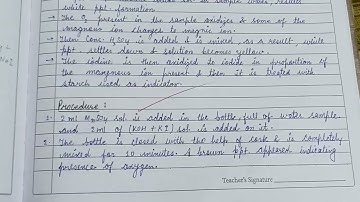 white ppt formation
→ The O2 present in the sample oxidizes & some of the
magneous ion changes to magnic ion.
→ Then Conc. H2SO4 is added & is mixed, as a result, white
ppt settles down & solution becomes yellow.
→ The iodine is then oxidized to iodine in proportion of
the manganeous ion present & then it is treated with
starch used as indicator.
Procedure :
1. 2 ml MnSO4 sol. is added in the bottle full of water sample
and 2 ml of (KOH + KI) sol. is added on it.
2. The bottle is closed with the help of cork & is completely
mixed for 10 minutes. A brown ppt appeared indicating
presence of oxygen.
Teacher's Signature